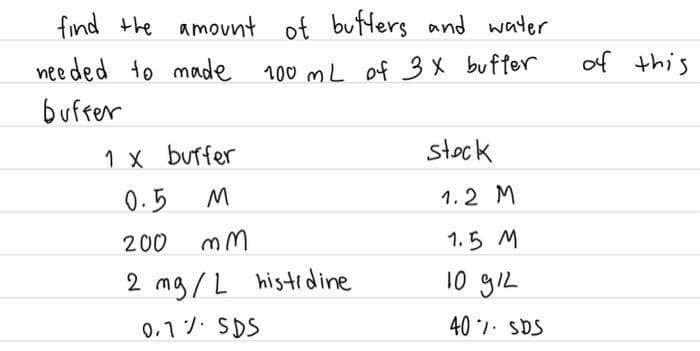 find the amount of buffers and water
needed to made 100 mL of 3 X buffer of this
buffer
1 X buffer stock
0.5 M 1.2 M
200 mM 1.5 M
2 mg/L histidine 10 g/L
0.1 % SDS 40 % SDS